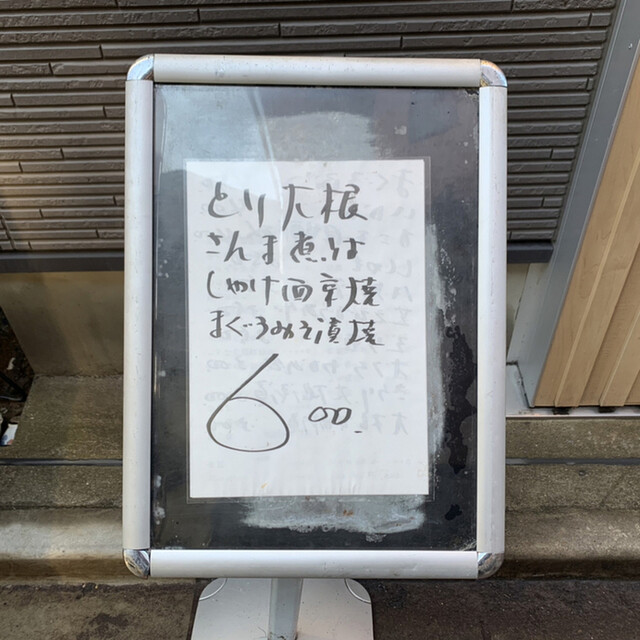 とり大根
さんま煮つけ
しゃけ西京焼
まぐろみそ漬焼
600.